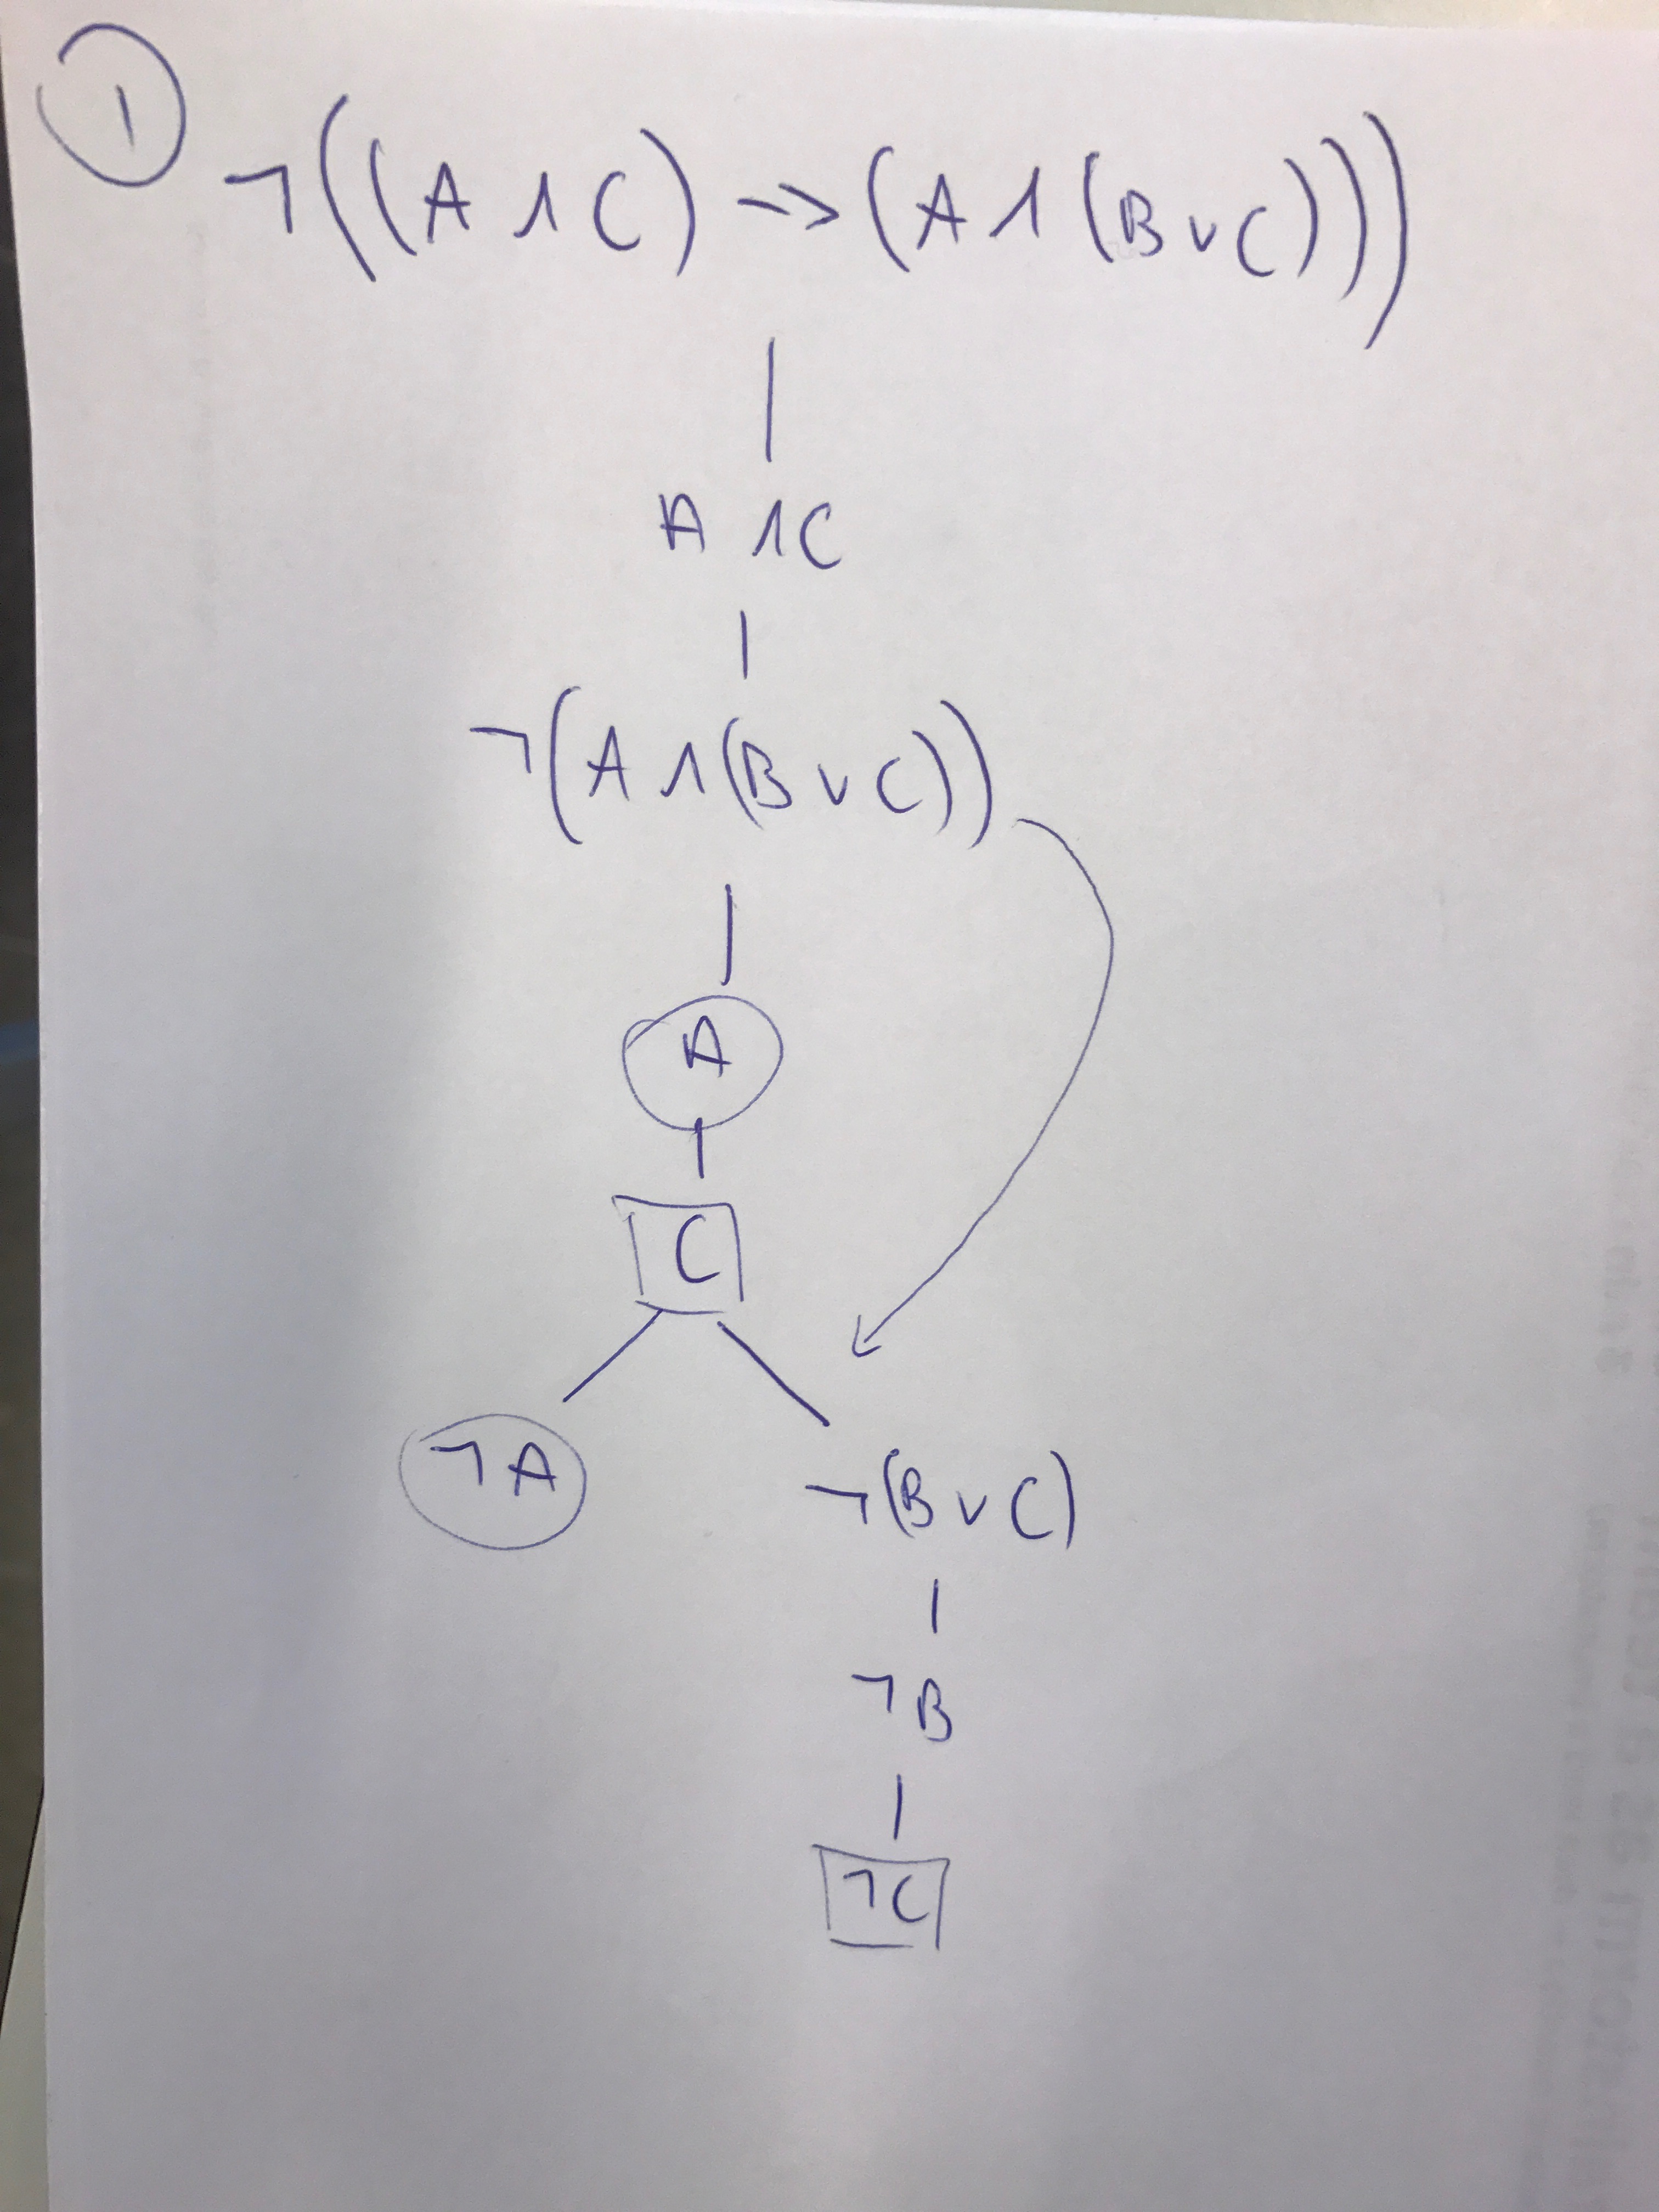 1
¬((A ∧ C) → (A ∧ (B ∨ C)))
A ∧ C
¬(A ∧ (B ∨ C))
A
C
¬A
¬(B ∨ C)
¬B
¬C